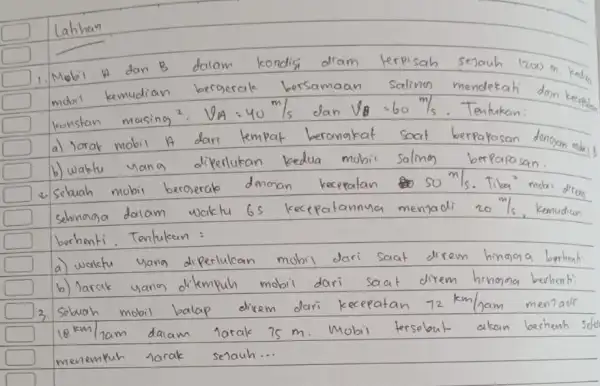 Latihan
1. Mobil A dan B dalam kondisi diam terpisah sejauh 1200 m kedua
mobil kemudian bergerak bersamaan saling mendekati dan kecepatan
konstan masing². VA = 40 m/s dan VB = 60 m/s. Tentukan:
a) Jarak mobil A dari tempat berangkat saat berpapasan dengan mobil B
b) waktu yang diperlukan kedua mobil saling berpapasan.
2. Sebuah mobil bergerak dengan kecepatan 50 m/s. Tiba² mobil direm
sehingga dalam waktu 6s kecepatannya menjadi 20 m/s, kemudian
berhenti. Tentukan:
a) waktu yang diperlukan mobil dari saat direm hingga berhenti
b) Jarak yang ditempuh mobil dari saat direm hingga berhenti
3. Sebuah mobil balap direm dari kecepatan 72 km/jam menjadi
18 km/jam dalam jarak 75 m. Mobil tersebut akan berhenti
menempuh jarak sejauh...